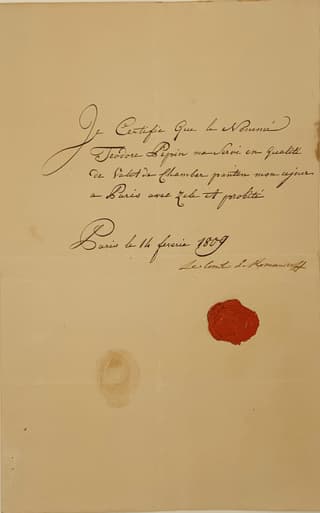 Je Certifie Que le Nommé
Teodore Pepin ma Servi en Qualité
de Valet de Chamber panten mon cejour
a Paris avec Zele et probité
Paris le 14 fevrie 1809
Le Comt de Romanzoff